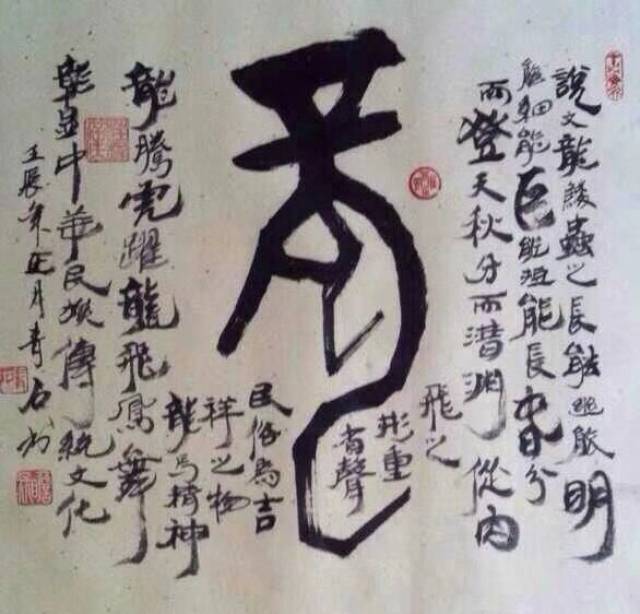 說文龍鱗蟲之長能幽能明
能細能巨能短能長春分
而登天秋分而潛淵從肉
飛之
形重
省聲
龍
民俗為吉
祥之物
龍馬精神
龍騰虎躍龍飛鳳舞
彰显中華民族傳統文化
壬辰年正月青石书